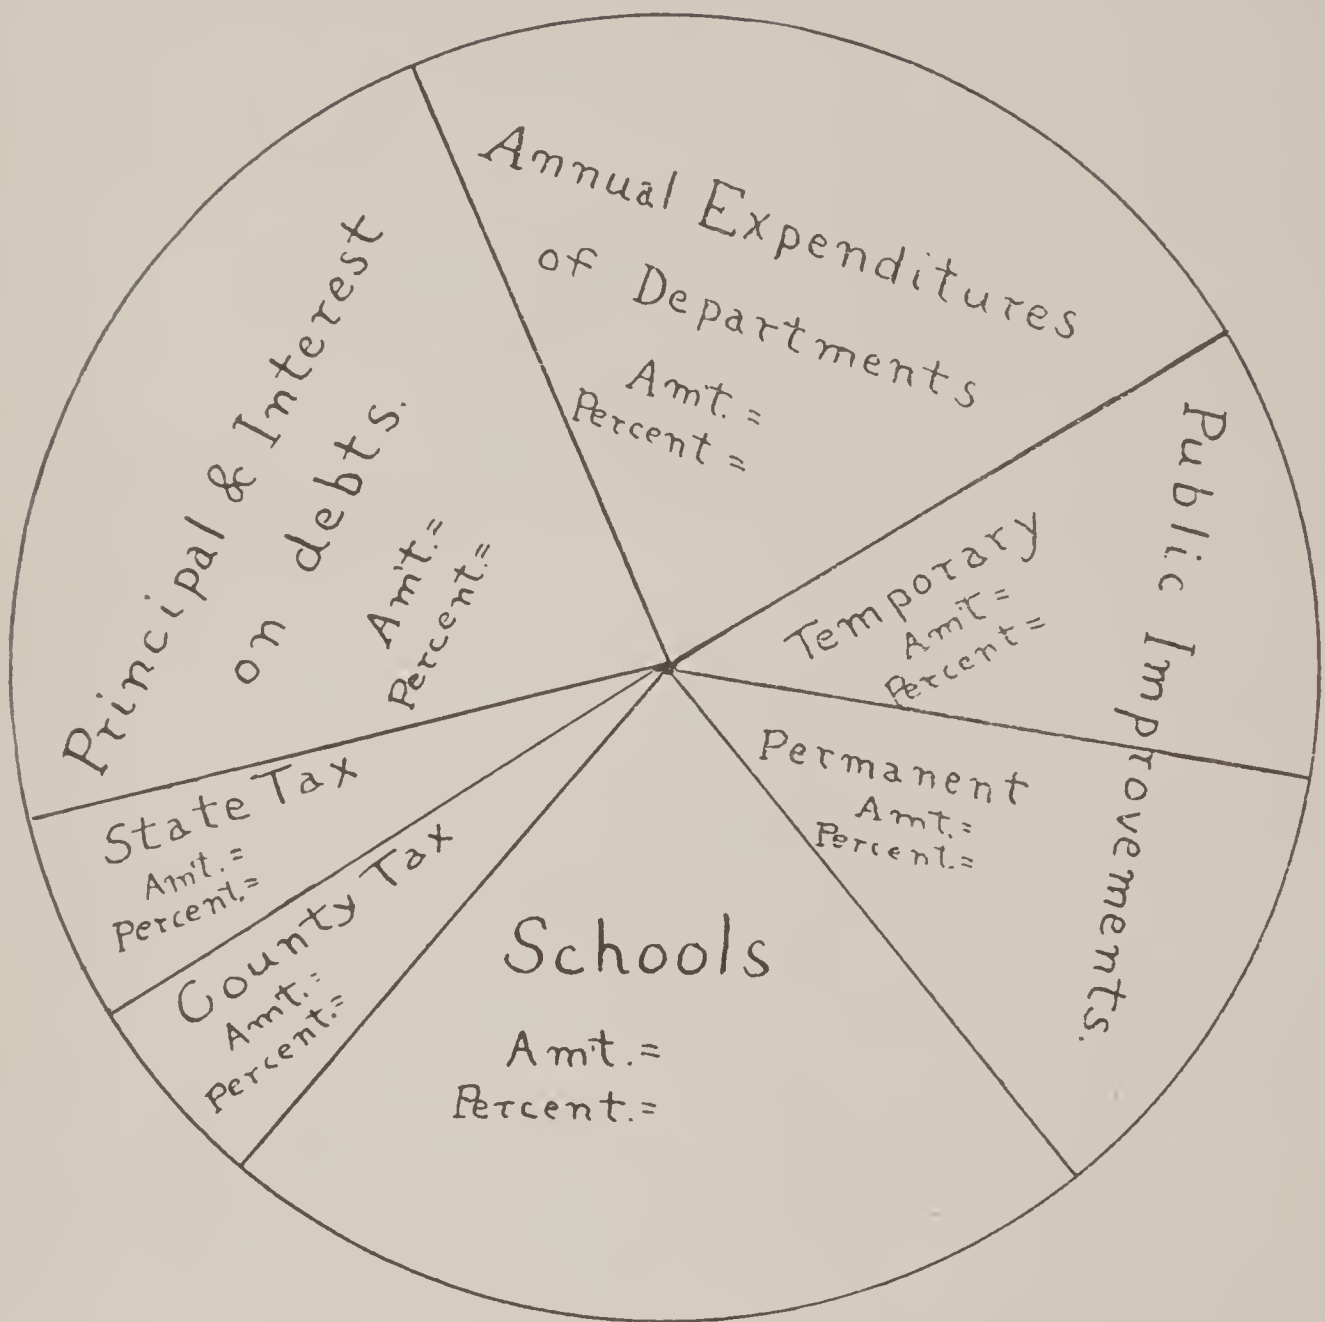 Annual Expenditures
of Departments
Amt. =
Percent =
Public Improvements.
Temporary
Am't =
Percent =
Permanent
Am't. =
Percent. =
Schools
Am't. =
Percent. =
County Tax
Am't. =
Percent. =
State Tax
Am't. =
Percent. =
Principal & Interest
on debts.
Am't. =
Percent. =